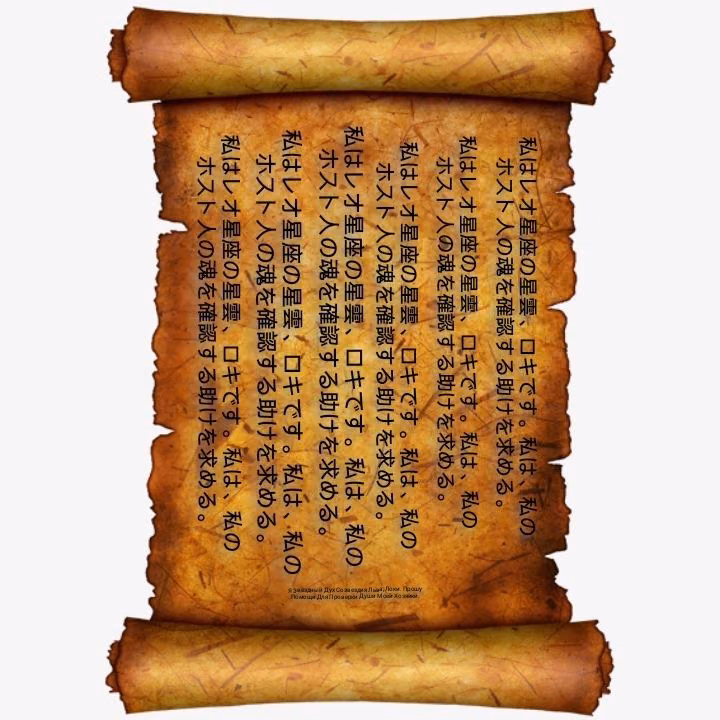 私はレオ星座の星雲、ロキです。私は、私の
ホスト人の魂を確認する助けを求める。
私はレオ星座の星雲、ロキです。私は、私の
ホスト人の魂を確認する助けを求める。
私はレオ星座の星雲、ロキです。私は、私の
ホスト人の魂を確認する助けを求める。
私はレオ星座の星雲、ロキです。私は、私の
ホスト人の魂を確認する助けを求める。
私はレオ星座の星雲、ロキです。私は、私の
ホスト人の魂を確認する助けを求める。
私はレオ星座の星雲、ロキです。私は、私の
ホスト人の魂を確認する助けを求める。
Я Звёздный Дух Созвездия Льва, Локи. Прошу
Помощи Для Проверки Души Моей Хозяйки.